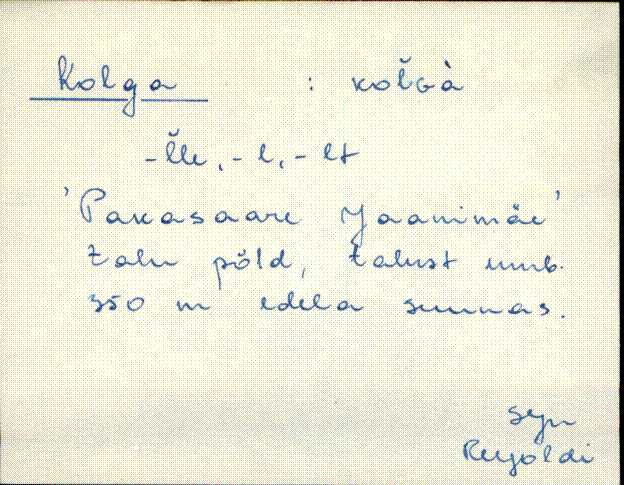 Kolga : kol̆ɢà
-l̆le, -l, -lt
'Pakasaare Jaanimäe'
talu põld, talust umb.
350 m edela suunas.